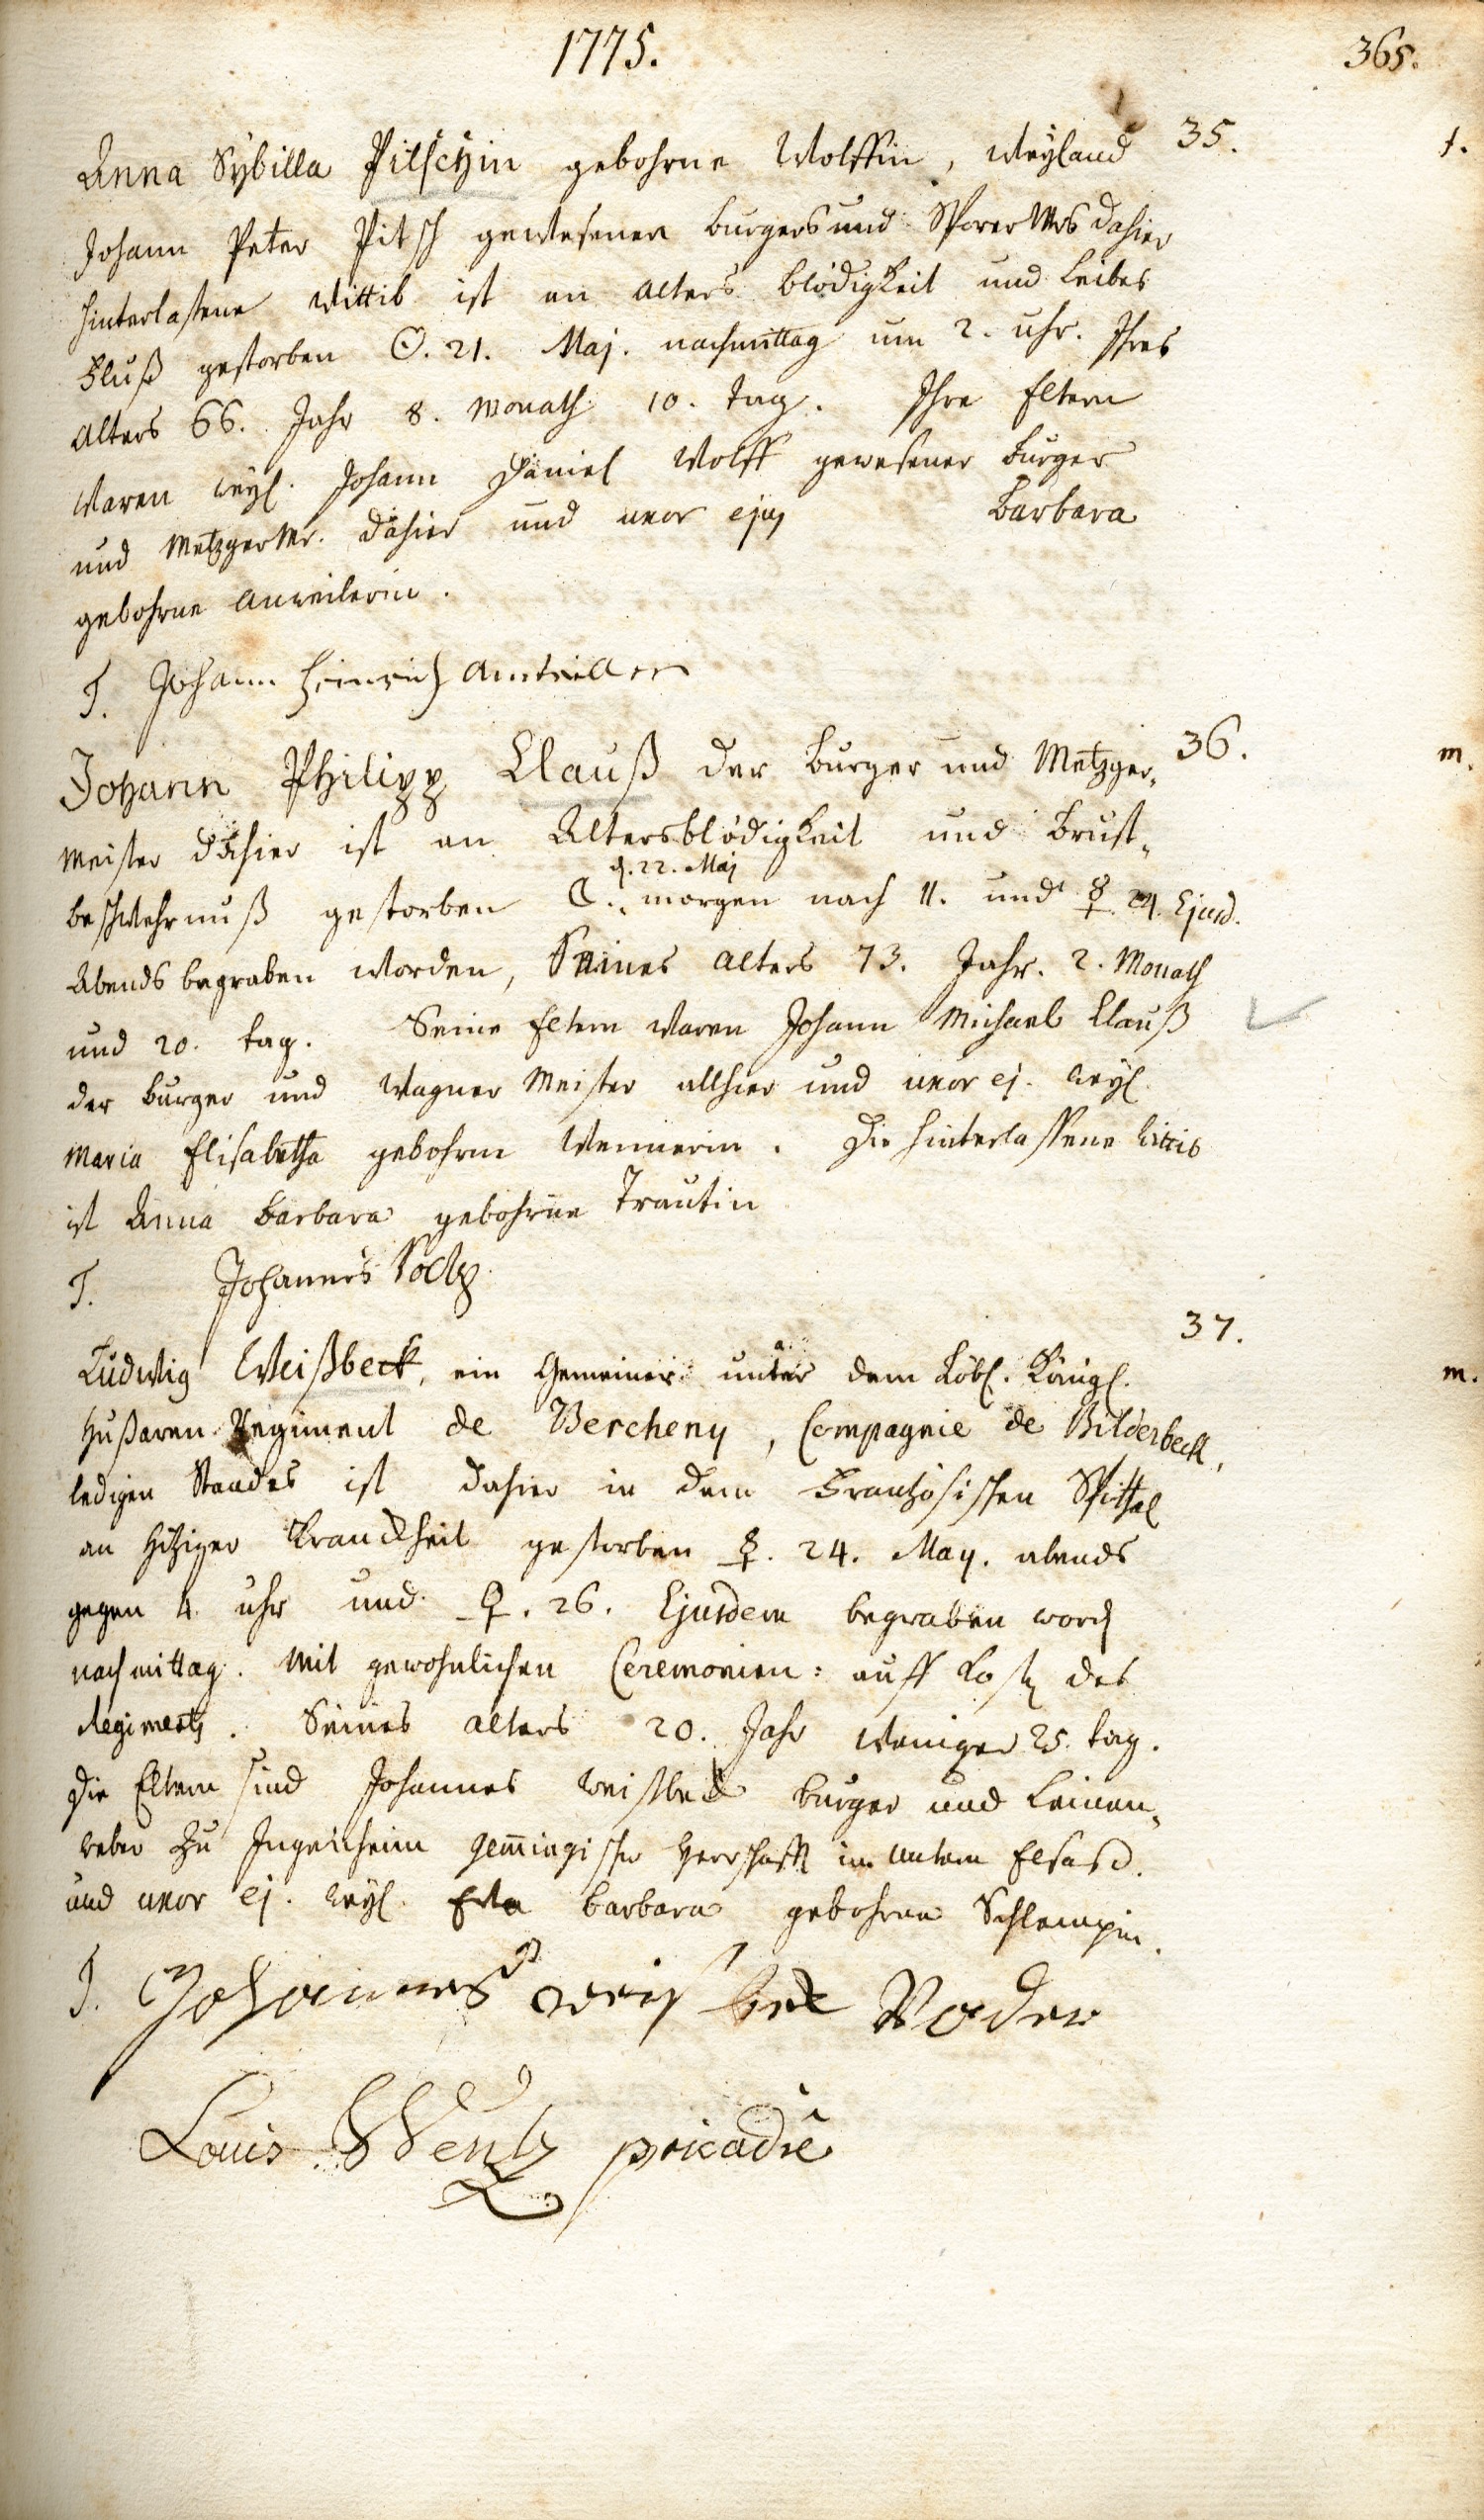 1775.
365.
Anna Sybilla Pitschin gebohrne Wolffin, weyland
35.
f.
Johann Peter Pitsch gewesenen burgers und Sporer Mrs dahier
hinterlaßene Wittib ist an alters blödigkeit und leibes
Fluß gestorben ☉. 21. Maj. nachmittag um 2. uhr. Ihres
alters 66. Jahr 8. Monath 10. tag. Ihre Eltern
waren weyl. Johann Daniel Wolff gewesener burger
und Metzger Mr. dahier und uxor ejus Barbara
gebohrne Anweilerin.
T. Johann Heinrich
Johann Philipp Clauß der burger und Metzger-
36.
m.
meister dahier ist an Altersblödigkeit und Brust-
d. 22. Maj
beschwehrnuß gestorben ☾. morgen nach 11. und ☿ 24. Ejusd.
Abends begraben worden, Seines alters 73. Jahr. 2. Monath
und 20. tag. Seine Eltern waren Johann Michael Clauß
der burger und Wagner Meister allhier und uxor ej. weyl.
Maria Elisabetha gebohrne Wennerin. Die hinterlassene Wittib
ist Anna Barbara gebohrne Trautin
T. Johannes
37.
Ludwig Weißbeck, ein Gemeiner unter dem Löbl. Königl.
m.
Hußaren Regiment de Bercheny, Compagnie de Bilderbeck,
ledigen Standes ist dahier in dem Frantzösischen Spithal
an hitziger Kranckheit gestorben ☿. 24. May. abends
gegen 4. uhr und ♀. 26. Ejusdem begraben word
nachmittag. mit gewohnlichen Ceremonien: auff Kosten des
Regiments. Seines alters 20. Jahr weniger 25. tag.
Die Eltern sind Johannes Weißbeck burger und Leinen-
weber zu Ingenheim Gemmingischer Herrschafft im untern Elsass.
und uxor ej. weyl. Eva Barbara gebohrne Schlempin.
T. Johannes weis bek Vader
Louis Wentz